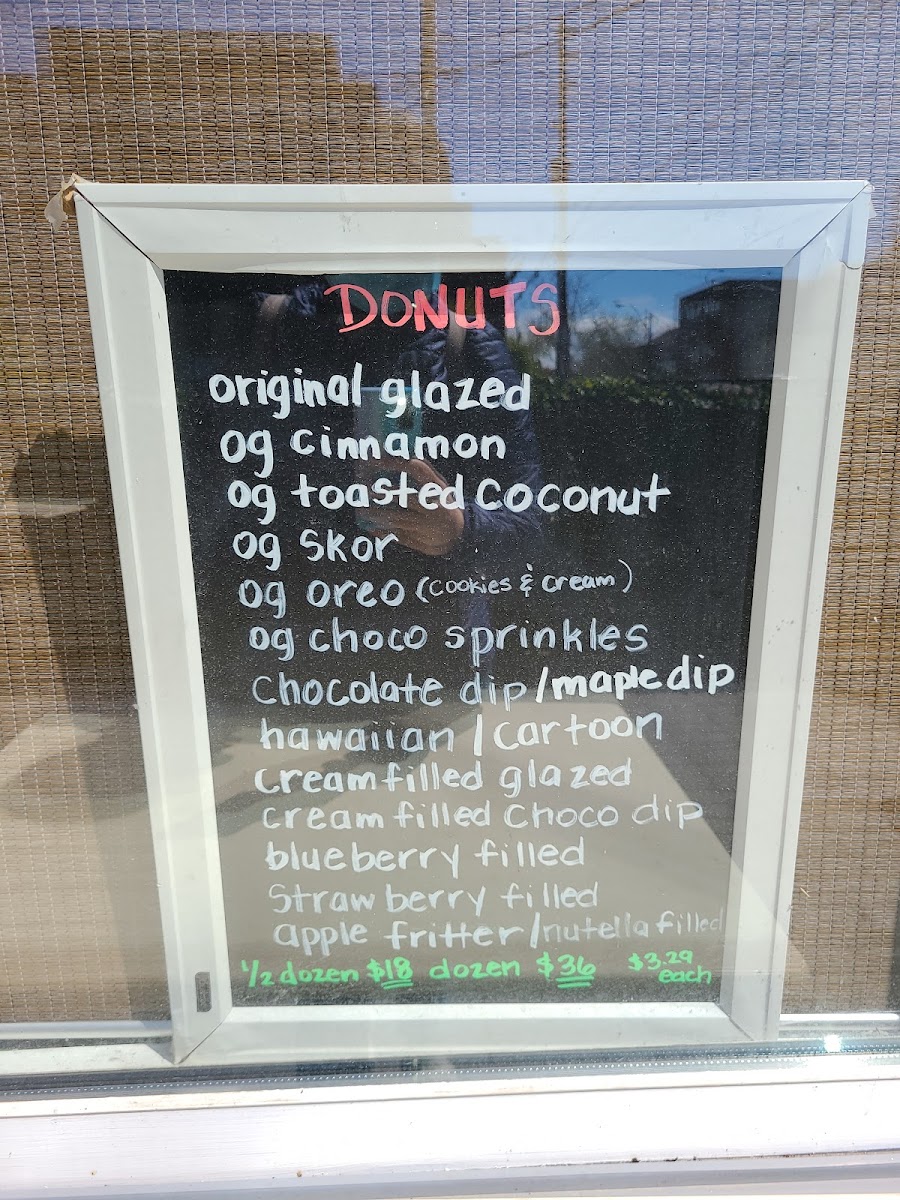 DONUTS
original glazed
og cinnamon
og toasted coconut
og skor
og oreo (cookies & cream)
og choco sprinkles
chocolate dip/maple dip
hawaiian / cartoon
cream filled glazed
cream filled choco dip
blueberry filled
strawberry filled
apple fritter/nutella filled
1/2 dozen $18 dozen $36 $3.29 each